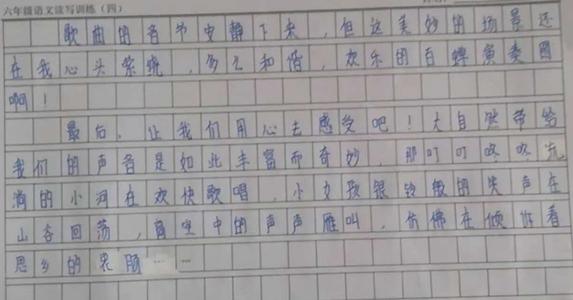 六年级语文读写训练（四）
歌曲的音节安静下来，但这美妙的场景还
在我心头萦绕，多么和谐，欢乐的自蝉演奏圈
啊！
最后，让我们用心去感受吧！大自然带给
我们的声音是如此丰富而奇妙，那叮叮咚咚流
淌的小河在欢快歌唱，小女孩银铃般的笑声在
山谷回荡，育空中的声声雁叫，仿佛在倾诉着
思乡的衷肠……